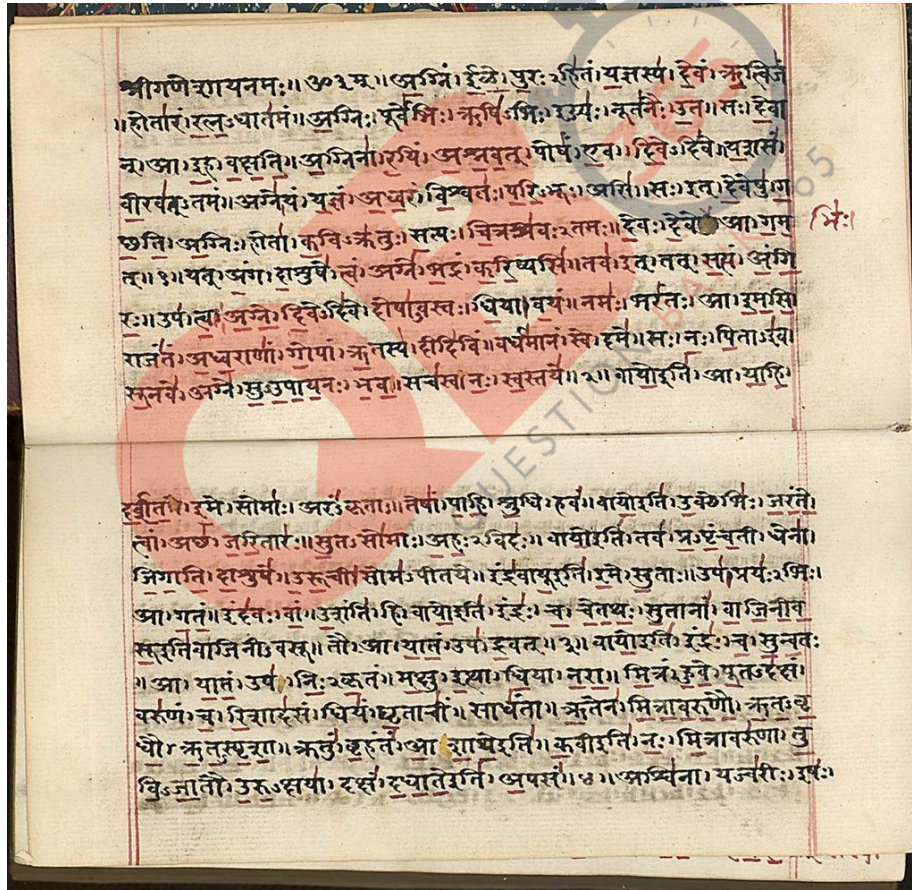 श्रीगणेशायनमः॥ॐ३म्॥अग्निं।ईळे।पुरःऽहितं।यज्ञस्य।देवं।ऋत्विजं
॥होतारं।रत्नऽधातमं॥अग्निः।पूर्वेभिः।ऋषिऽभिः।ईड्यः।नूतनैः।उत॥सः।देवा
न्।आ।इह।वक्षति॥अग्निना।रयिं।अश्नवत्।पोषं।एव।दिवेऽदिवे॥यशसं
वीरवत्ऽतमं॥अग्नेयं।यज्ञं।अध्वरं।विश्वतः।परिऽभूः।असि॥सः।इत्।देवेषु।ग
छति॥अग्निः।होता।कविऽक्रतुः।सत्यः।चित्रश्रवःऽतमः॥देवः।देवे आ।गम
भिः।
त्॥१॥यत्।अंग।दाशुषे।त्वं।अग्ने।भद्रं।करिष्यसि॥तव।इत्।तत्।सत्यं।अंगि
रः॥उप।त्वा।अग्ने।दिवेऽदिवे।दोषाऽवस्तः।धिया।वयं॥नमः।भरंतः।आ।इमसि
राजंतं।अध्वराणां।गोपां।ऋतस्य।दीदिविं॥वर्धमानं।स्वे।दमे॥सः।नः।पिताऽइव
सूनवे।अग्ने।सुऽउपायनः।भव॥सचस्व।नः।स्वस्तये॥२॥वायोइति।आ।याहि
दर्शत।इमे।सोमाः।अरंऽकृताः॥तेषां।पाहि।श्रुधि।हवं॥वायोइति।उक्थेभिः।जरंते
त्वां।अछ।जरितारः॥सुतऽसोमाः।अहःऽविदः॥वायोइति।तव।प्रऽपृंचती।धेना
जिगाति।दाशुषे॥उरूची।सोमऽपीतये॥इंद्रवायूइति।इमे।सुताः॥उप।प्रयःऽभिः।
आ।गतं॥इंदवः।वां।उशंति।हि।वायोइति।इंद्रः।च।चेतथः।सुतानां।वाजिनीव
सूइतिवाजिनीऽवसू॥तौ।आ।यातं।उप।द्रवत्॥३॥वायोइति।इंद्रः।च।सुन्वतः
॥आ।यातं।उप।निःऽकृतं॥मक्षु।इत्था।धिया।नरा॥मित्रं।हुवे।पूतऽदक्षं
वरुणं।च।रिशादसं॥धियं।घृताचीं॥साधंता॥ऋतेन।मित्रावरुणौ।ऋतऽवृ
धौ।ऋतऽस्पृशा॥क्रतुं।बृहंतं।आशाथेइति॥कवीइति।नः।मित्रावरुणा।तु
विऽजातौ।उरुऽक्षया।दक्षं।दधातेइति।अपसं॥४॥अश्विना।यज्वरीः।इषः।
QUESTION BANK 365